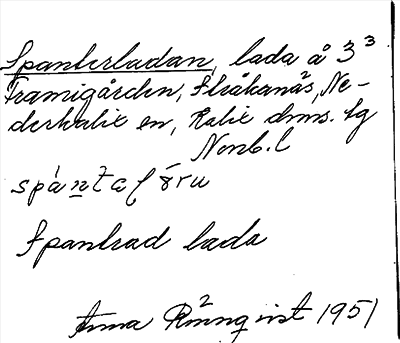 Spanterladan, lada å 3³
Framigården, Stråkanäs, Ne-
derkalix sn, Kalix dms. tg
Norrb. l
Spantad lada
Anna Rönnqvist 1951